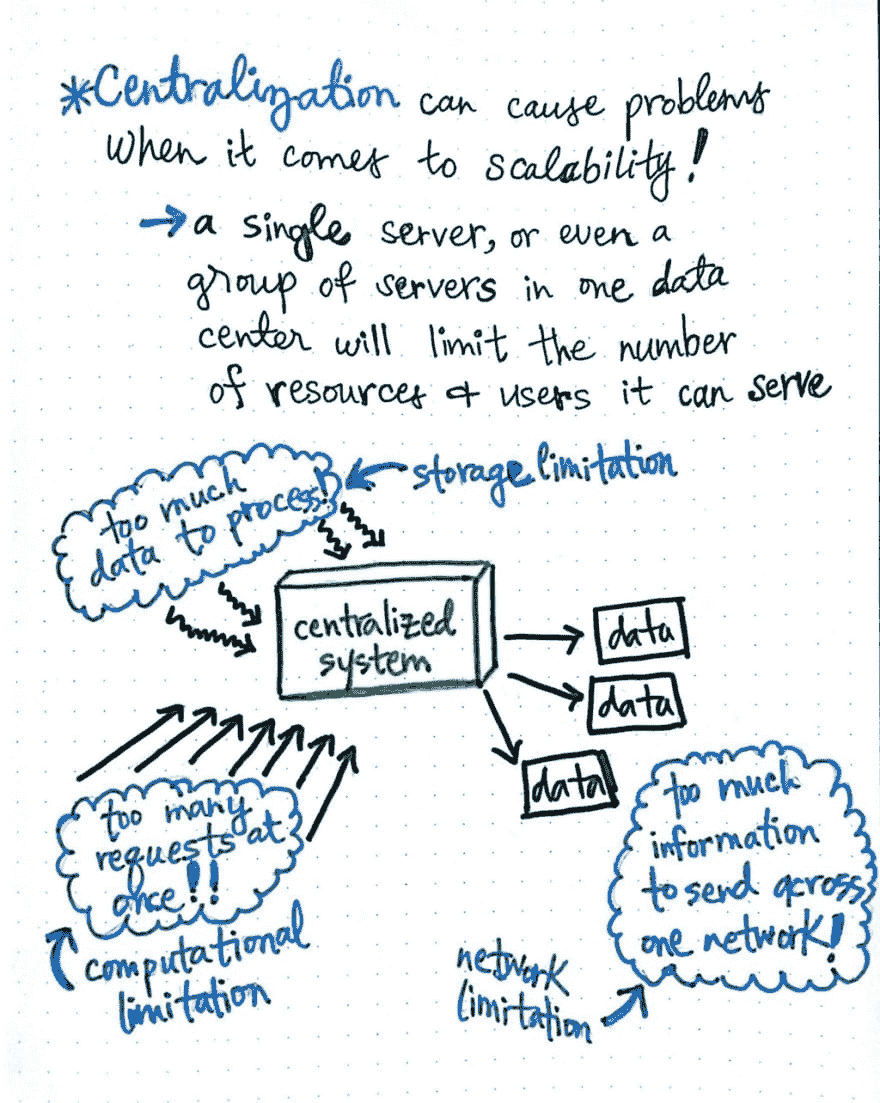 *Centralization can cause problems
when it comes to scalability!
→ a single server, or even a
group of servers in one data
center will limit the number
of resources & users it can serve
too much
data to process!
← storage limitation
centralized
system
data
data
data
too many
requests at
once!!
computational
limitation
too much
information
to send across
one network!
network
limitation